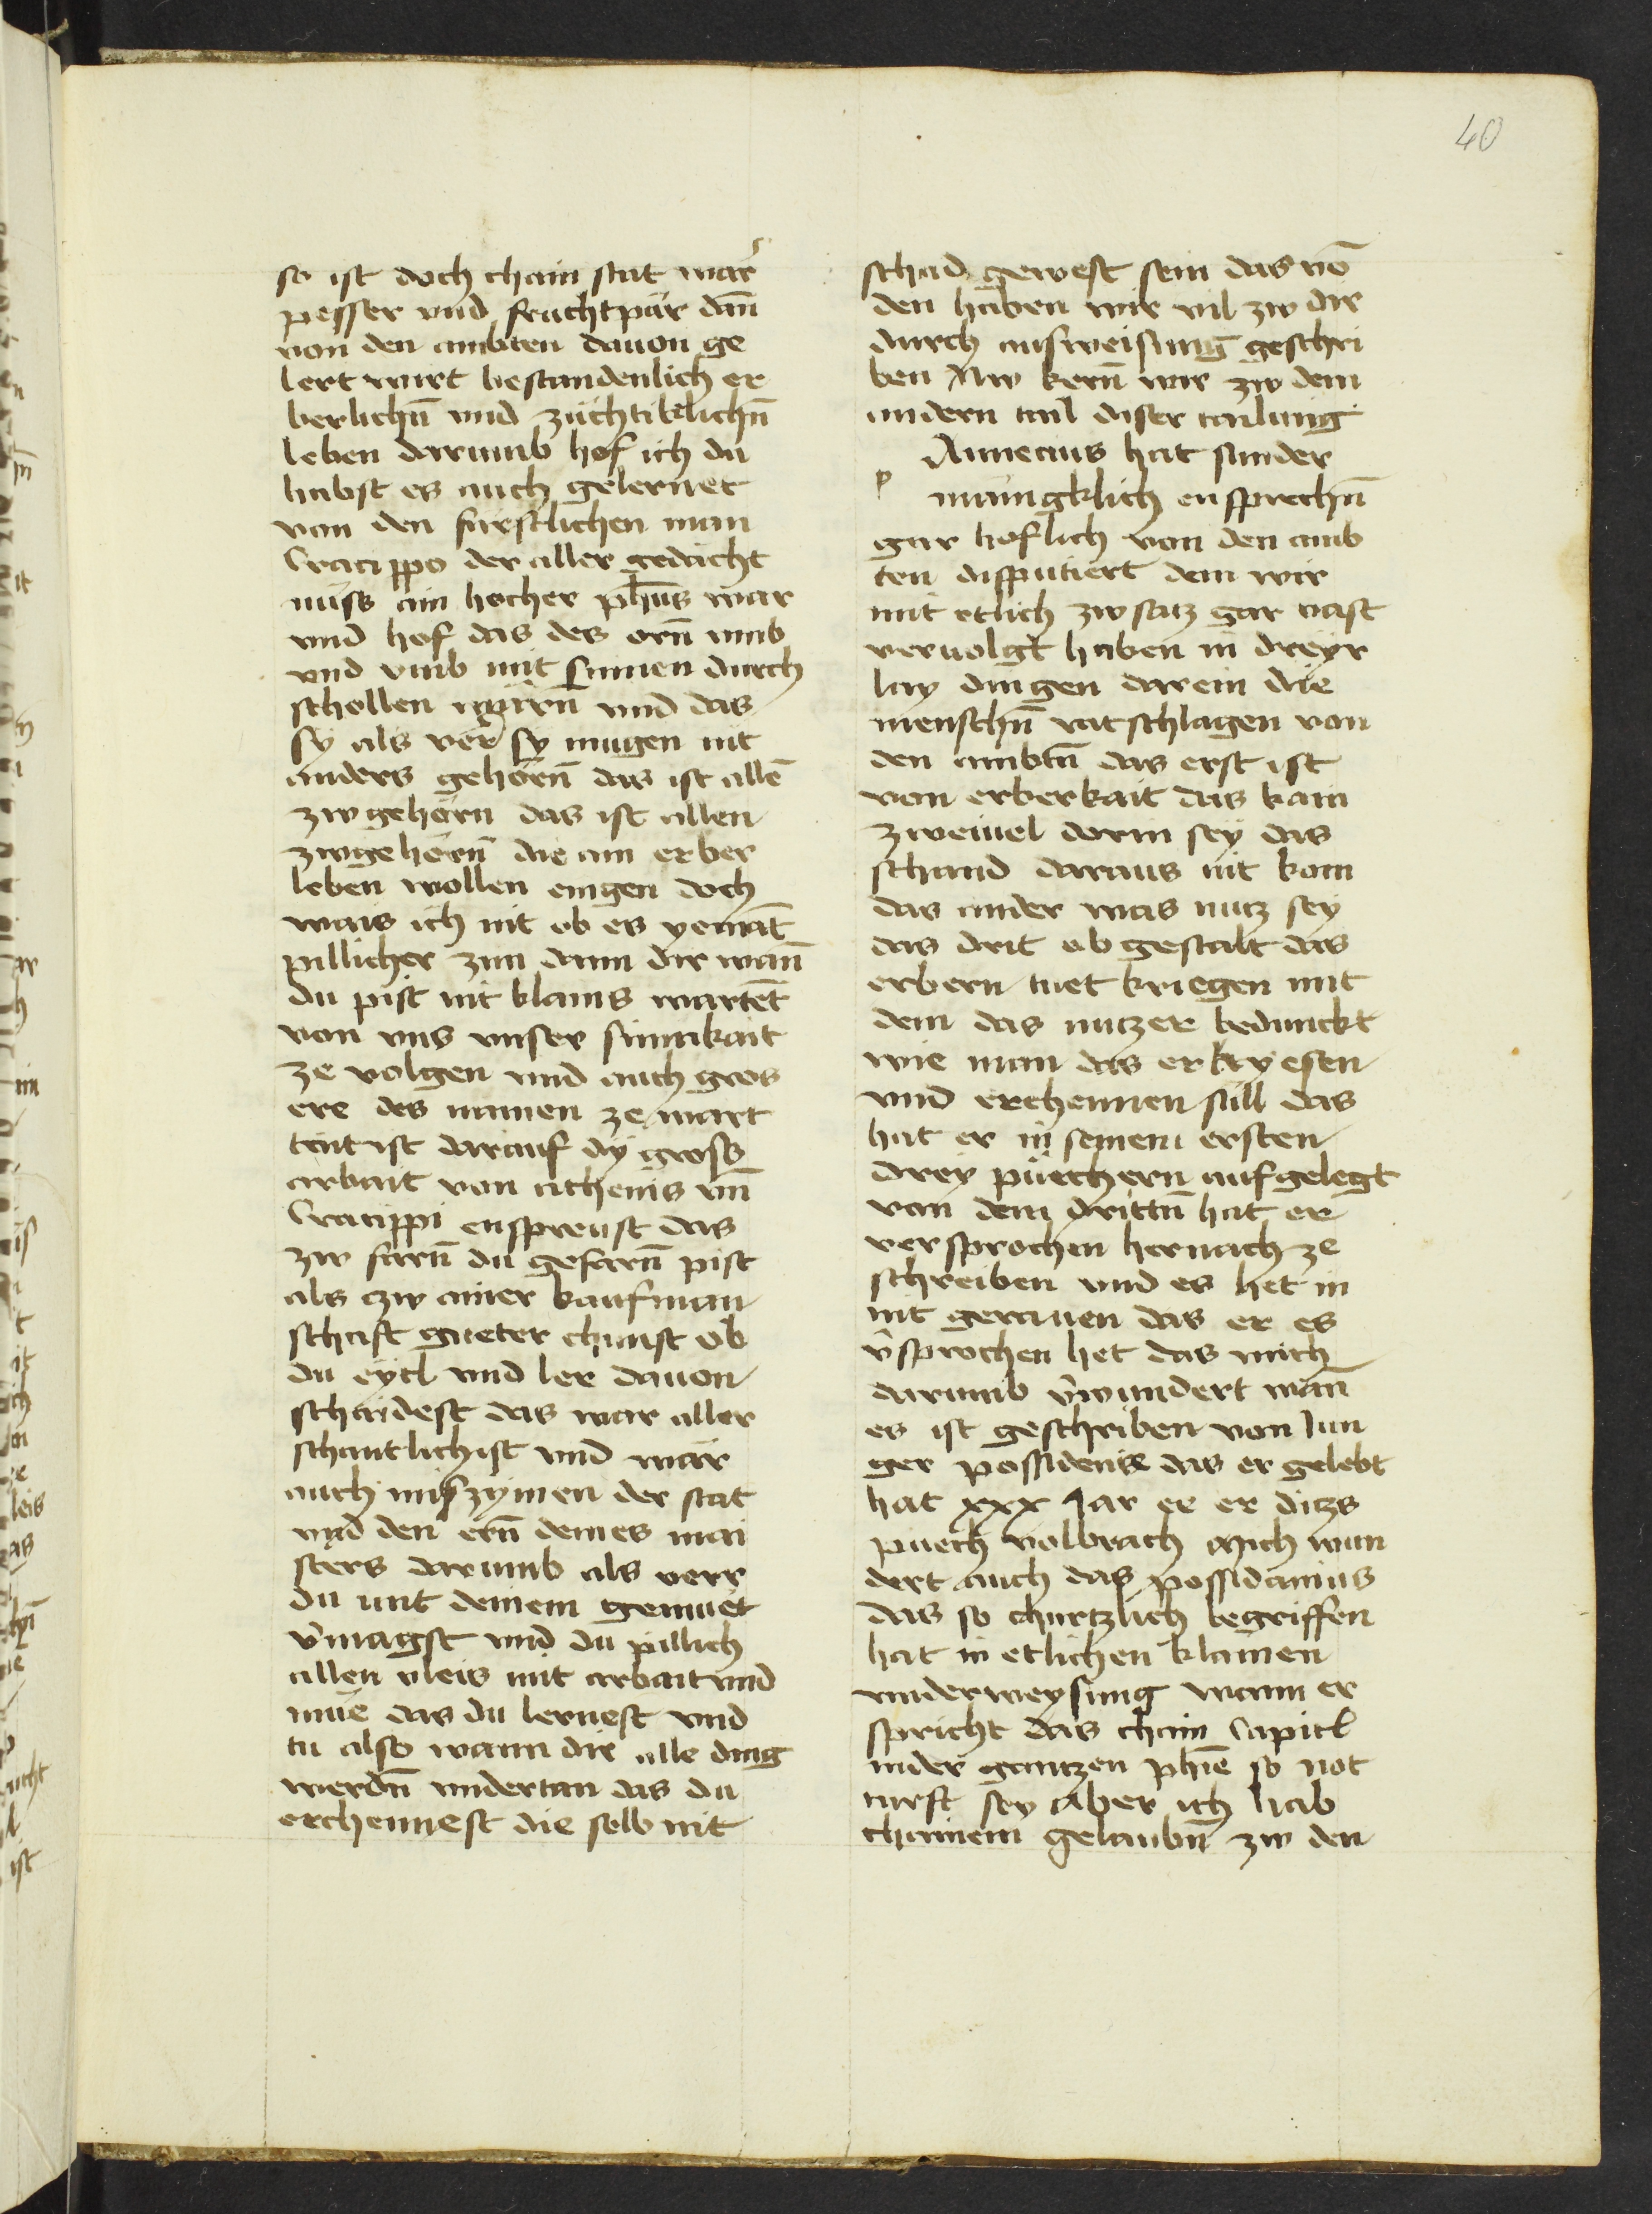 40
so ist doch chain stat war
pesser vnd fruchtpär dan̄
von den ambten dauon ge
lert wirt bestandenlich er
berlichn̄ vnd züchtiklichn̄
leben darumb hof ich du
habst es auch gelernet
von den furstlichen man
Cracippo der aller gedächt
nüss ain hocher ph̄us war
vnd hof das des orn̄ vmb
vnd vmb mit stimen durch
schollen warn̄ vnd das
sy als verr sy mugen nit
anders gehörn̄ das ist allē
zw gehörn das ist allen
zwgehörn̄ die ain erber
leben wollen eingen doch
wais ich nit ob es yemāt
pillicher zim dann dir wan̄
du pist nit klains wartēt
von vns vnser sinnikait
ze volgen vnd auch gros
ere des namen ze wart
tent ist darauf dy gross
arbait von athenis vn̄
Cracippi enspreust das
zw farn̄ du gefarn̄ pist
als zw ainer kaufman
schaft gueter chunst ob
du eytl vnd ler dauon
schaidest das war aller
schantlichist vnd wär
auch miszymen der stat
vnd den ern̄ deines mai
sters darumb als verr
du mit deinem gemuet
v̄magst vnd du pillich
allen vleis mit arbait vnd
müe das du lernest vnd
tu also wann dir alle ding
werdn̄ vndertan das du
erchennest die selb nit
schad gewest sein das vō
den haben wir vil zw dir
durch ausweisung geschri
ben Nw kern̄ wir zw dem
andern tail diser tailung
p
Annecius hat sunder
mäingklich ensprechn̄
gar hoflich von den amb
ten disputiert dem wir
mit etlich zwsatz gar vast
veruolgt haben in dreyr
lay dingen darein die
menschn̄ ratschlagen von
den ambtn̄ das erst ist
von erberkait das kain
zweiuel dorin sey das
schand daraus nit kom
das ander was nutz sey
das drit ob gestalt das
erbern tuet kriegen mit
dem das nutzer bedunckt
wie man das erkyesen
vnd erchennen sull das
hat er in seinem ersten
drey püechern aufgelegt
von dem drittn̄ hat er
versprochen hernach ze
schreiben vnd es het in
nit gerauen das er es
v̄sprochen het das mich
darumb v̄wundert wan̄
es ist geschriben von Jun
ger possidenis das er gelebt
hat xxx Jar ee er ditzs
puech volbrach Mich wun
dert auch das possidanius
das so churtzlich begriffen
hat in etlichen klainen
vnderweysung wann er
spricht das chain Capitl
inder gantzen phīe so not
turft sey Aber ich hab
chainem gelaubn̄ zw den